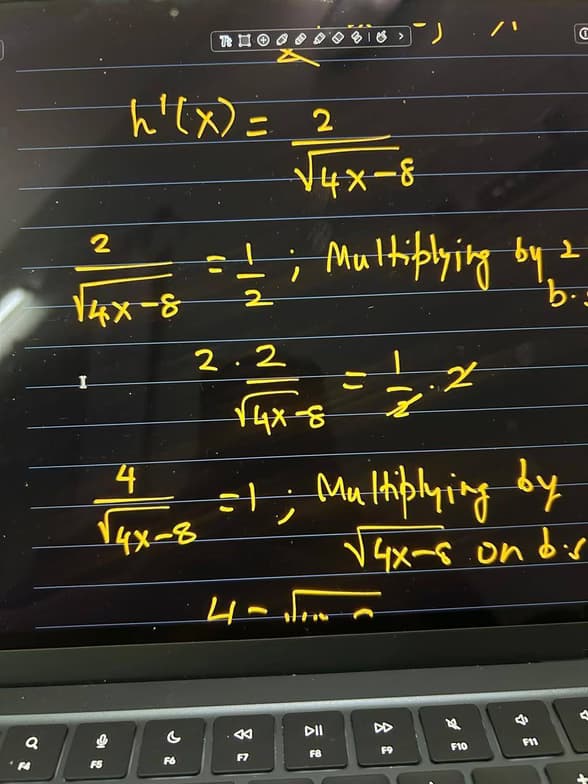 h'(x) = 2/√(4x-8)
2/√(4x-8) = 1/2 ; Multiplying by 2
b.s
2 · 2/√(4x-8) = 1/2 · 2
4/√(4x-8) = 1 ; Multiplying by
√(4x-8) on b.s
F4 F5 F6 F7 F8 F9 F10 F11